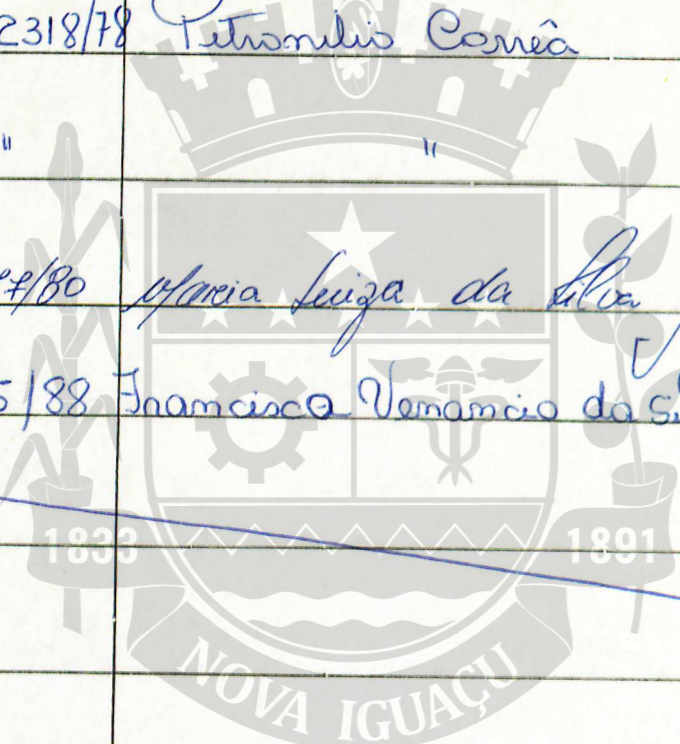 2318/78 Petronilio Corrêa
" "
7/80 Maria Luiza da Silva
5/88 Francisca Venancio da Si
1833 1891
NOVA IGUAÇU